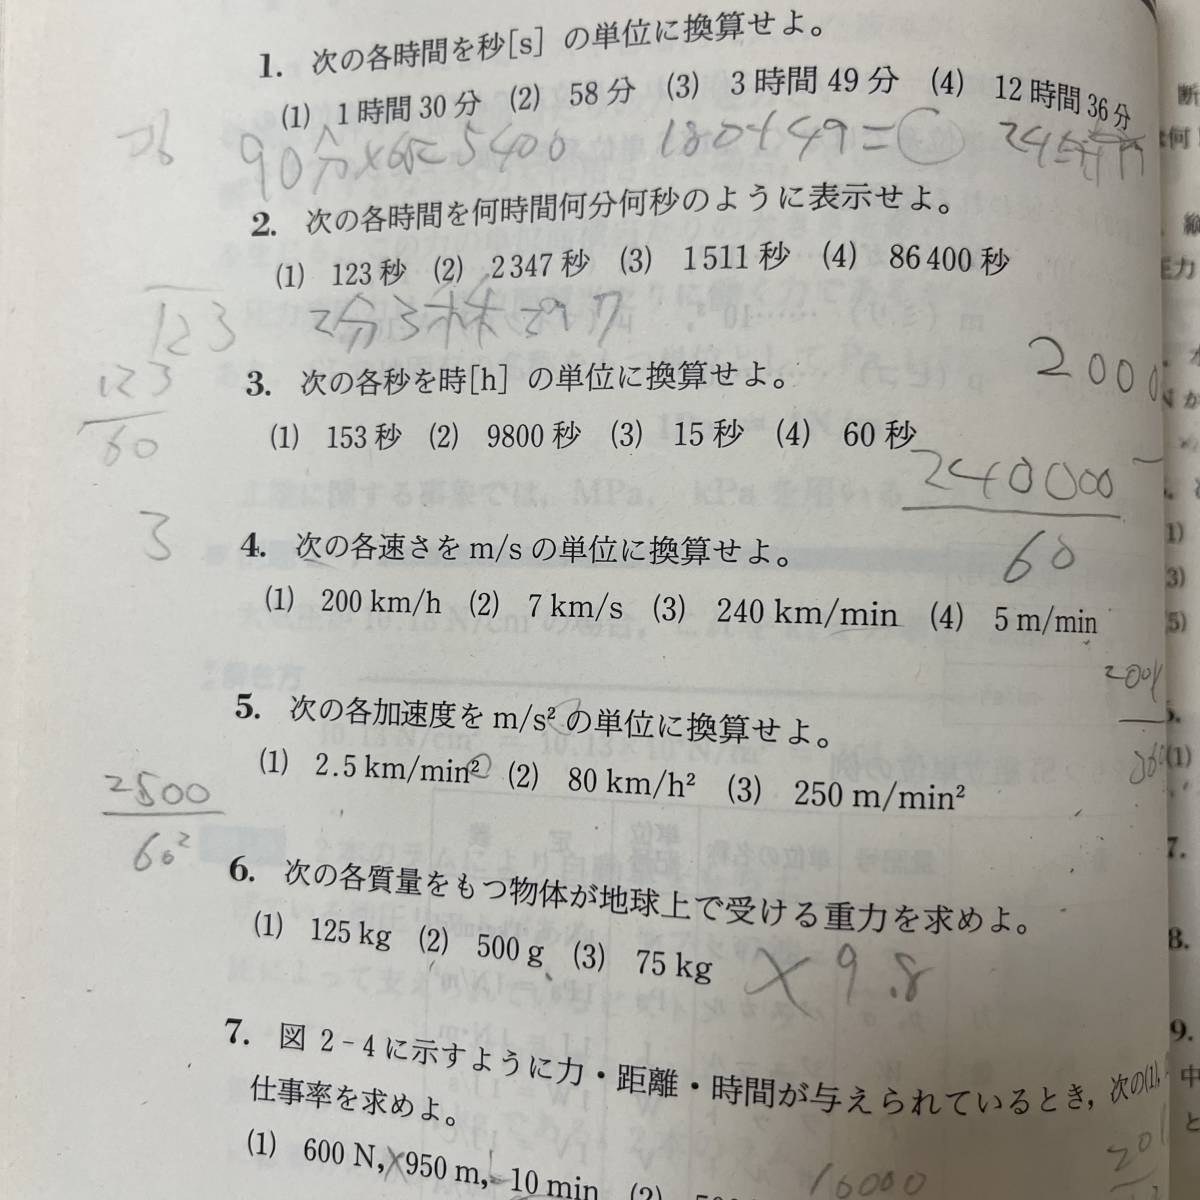 1. 次の各時間を秒[s] の単位に換算せよ。
(1) 1時間30分 (2) 58分 (3) 3時間49分 (4) 12時間36分
180+49=
2. 次の各時間を何時間何分何秒のように表示せよ。
(1) 123秒 (2) 2347秒 (3) 1511秒 (4) 86400秒
123
2分3秒
123
60
3. 次の各秒を時[h] の単位に換算せよ。
2000
(1) 153秒 (2) 9800秒 (3) 15秒 (4) 60秒
240000
60
3
4. 次の各速さを m/s の単位に換算せよ。
(1) 200 km/h (2) 7 km/s (3) 240 km/min (4) 5 m/min
5. 次の各加速度を m/s² の単位に換算せよ。
(1) 2.5 km/min² (2) 80 km/h² (3) 250 m/min²
2500
60²
6. 次の各質量をもつ物体が地球上で受ける重力を求めよ。
(1) 125 kg (2) 500 g (3) 75 kg
×9.8
7. 図 2-4 に示すように力・距離・時間が与えられているとき，次の(1),
仕事率を求めよ。
(1) 600 N, 950 m, 10 min (2)
10000
断
何
圧力
1)
3)
5)
(1)
7.
8.
9.
中
と